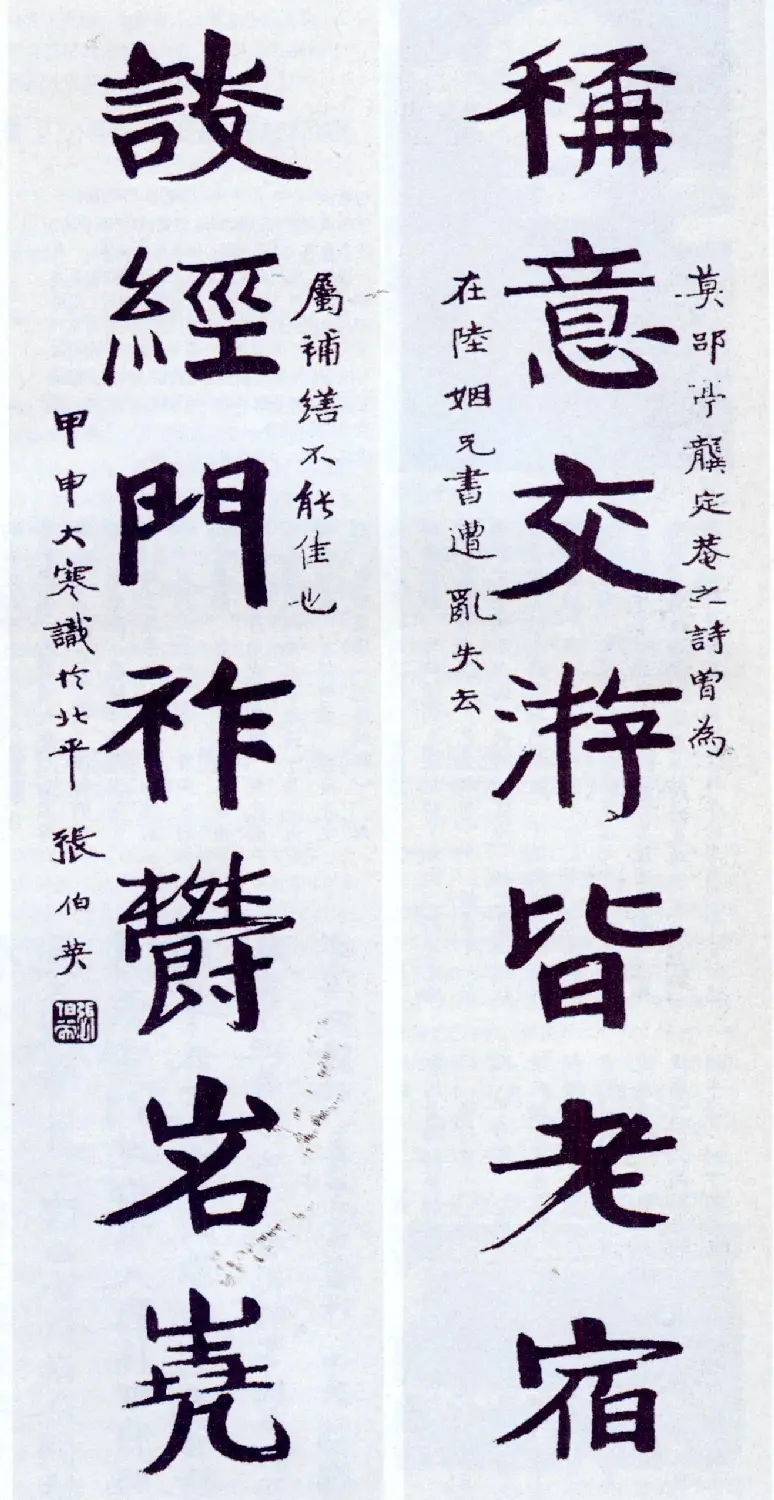 稱意交游皆老宿
談經門祚欝岧嶤
莫郘亭龔定菴之詩曾為
在陸姻兄書遭亂失去
屬補繕不能佳也
甲申大寒識於北平 張伯英